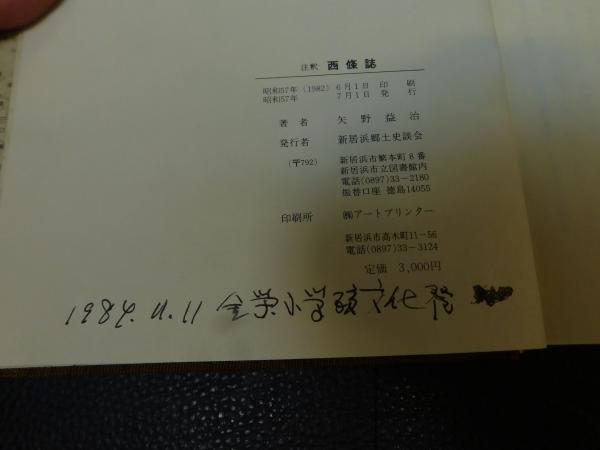 注釈 西條誌
昭和57年(1982) 6月1日 印 刷
昭和57年 7月1日 発 行
著者 矢野益治
発行者 新居浜郷土史談会
(〒792) 新居浜市繁本町8番
新居浜市立図書館内
電話(0897)33-2180
振替口座 徳島14055
印刷所 ㈱アートプリンター
新居浜市高木町11-56
電話(0897)33-3124
定価 3,000円
1984.11.11 金栄小学校文化祭